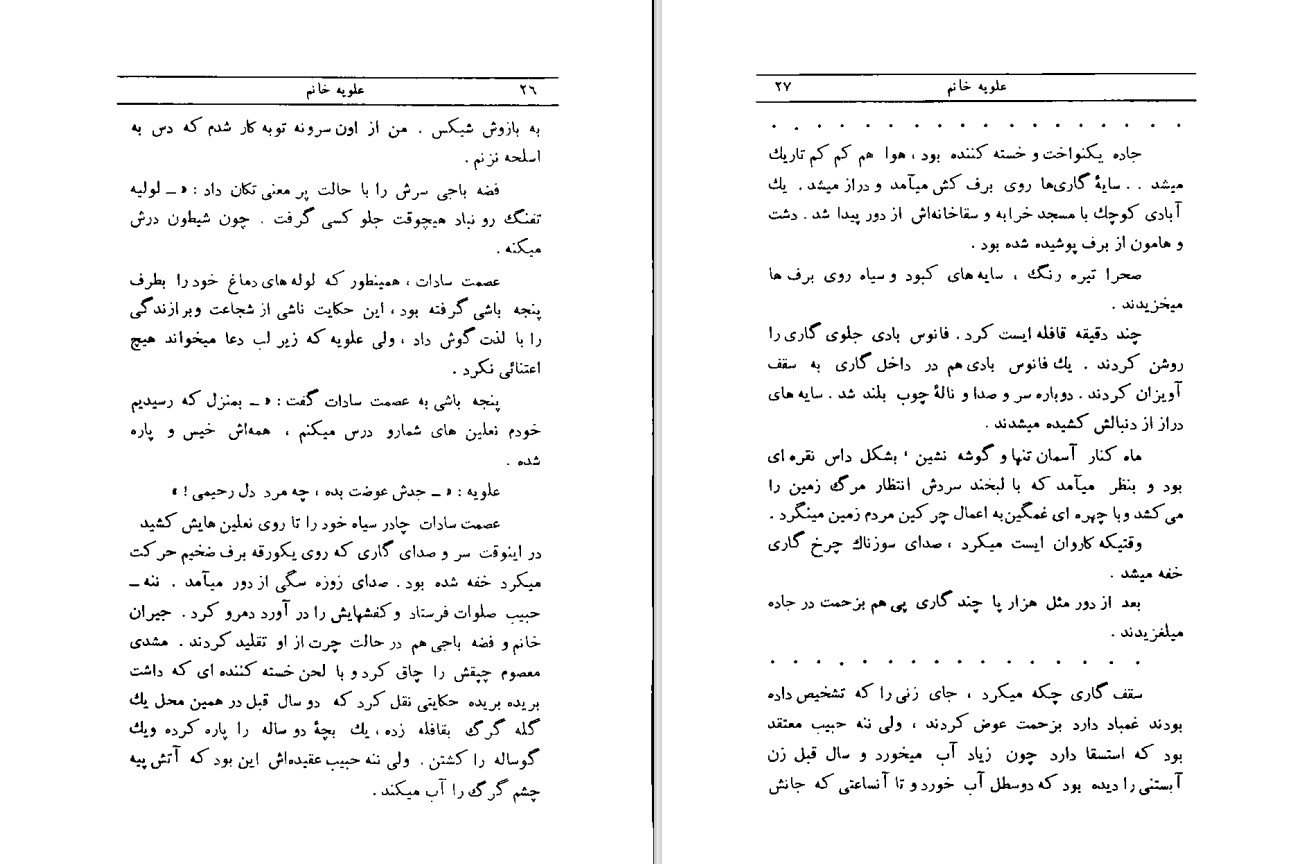 ۲۶ علویه خانم
به بازوش شیکس . من از اون سرونه توبه کار شدم که دس به
اسلحه نزنم .
فضه باجی سرش را با حالت پر معنی تکان داد : « ـ لولیه
تفنگ رو نباد هیچوقت جلو کسی گرفت . چون شیطون درش
میکنه .
عصمت سادات ، همینطور که لوله های دماغ خود را بطرف
پنجه باشی گرفته بود ، این حکایت ناشی از شجاعت وبرازندگی
را با لذت گوش داد ، ولی علویه که زیر لب دعا میخواند هیچ
اعتنائی نکرد .
پنجه باشی به عصمت سادات گفت : « ـ بمنزل که رسیدیم
خودم نعلین های شمارو درس میکنم ، همه‌اش خیس و پاره
شده .
علویه : « ـ جدش عوضت بده ، چه مرد دل رحیمی ! »
عصمت سادات چادر سیاه خود را تا روی نعلین هایش کشید
در اینوقت سر و صدای گاری که روی یکورقه برف ضخیم حرکت
میکرد خفه شده بود . صدای زوزه سگی از دور میآمد . ننه ـ
حبیب صلوات فرستاد و کفشهایش را در آورد دمرو کرد . جیران
خانم و فضه باجی هم در حالت چرت از او تقلید کردند . مشدی
معصوم چپقش را چاق کرد و با لحن خسته کننده ای که داشت
بریده بریده حکایتی نقل کرد که دو سال قبل در همین محل یك
گله گرگ بقافله زده ، یك بچهٔ دو ساله را پاره کرده ویك
گوساله را کشتن . ولی ننه حبیب عقیده‌اش این بود که آتش پیه
چشم گرگ را آب میکند .
علویه خانم ۲۷
. . . . . . . . . . . . . . . . . .
جاده یکنواخت و خسته کننده بود ، هوا هم کم کم تاریك
میشد . . سایهٔ گاری‌ها روی برف کش میآمد و دراز میشد . یك
آبادی کوچك با مسجد خرابه و سقاخانه‌اش از دور پیدا شد . دشت
و هامون از برف پوشیده شده بود .
صحرا تیره رنگ ، سایه های کبود و سیاه روی برف ها
میخزیدند .
چند دقیقه قافله ایست کرد . فانوس بادی جلوی گاری را
روشن کردند . یك فانوس بادی هم در داخل گاری به سقف
آویزان کردند . دوباره سر و صدا و نالهٔ چوب بلند شد . سایه های
دراز از دنبالش کشیده میشدند .
ماه کنار آسمان تنها و گوشه نشین ، بشکل داس نقره ای
بود و بنظر میآمد که با لبخند سردش انتظار مرگ زمین را
می‌کشد وبا چهره ای غمگین به اعمال چرکین مردم زمین مینگرد .
وقتیکه کاروان ایست میکرد ، صدای سوزناك چرخ گاری
خفه میشد .
بعد از دور مثل هزار پا چند گاری پی هم بزحمت در جاده
میلغزیدند .
. . . . . . . . . . . . . . . . .
سقف گاری چکه میکرد ، جای زنی را که تشخیص داده
بودند غمباد دارد بزحمت عوض کردند ، ولی ننه حبیب معتقد
بود که استسقا دارد چون زیاد آب میخورد و سال قبل زن
آبستنی را دیده بود که دوسطل آب خورد و تا آنساعتی که جانش